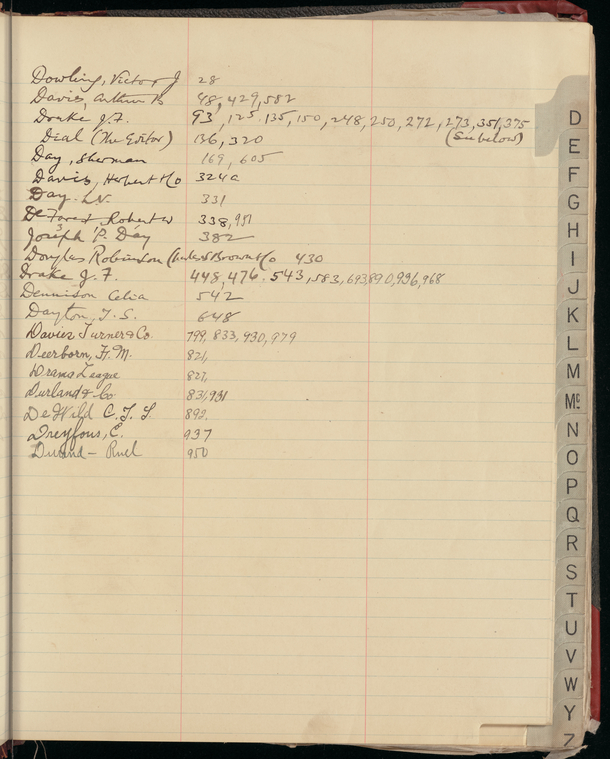 Dowling, Victor J 28
Davies, Arthur B 48, 429, 552
Drake J.F. 93, 125, 135, 150, 248, 250, 272, 273, 351, 375
Dial (The Editor) 136, 320 (See below)
Day, Sherman 169, 605
Davis, Herbert & Co 324a
Day. L.N. 331
DeForest, Robert W 338, 951
Joseph P. Day 382
Douglas Robinson Brown & Co 430
Drake J.F. 448, 476. 543, 583, 693, 890, 936, 968
Dennison Celia 542
Dayton, T.S. 648
Davies, Turner & Co. 799, 833, 930, 979
Deerborn, H.M. 821,
Drama League 827,
Durland & Co 831, 931
DeWild C.F.L 892.
Dreyfous, E. 937
Durand-Ruel 950
D
E
F
G
H
I
J
K
L
M
Mc
N
O
P
Q
R
S
T
U
V
W
Y
Z